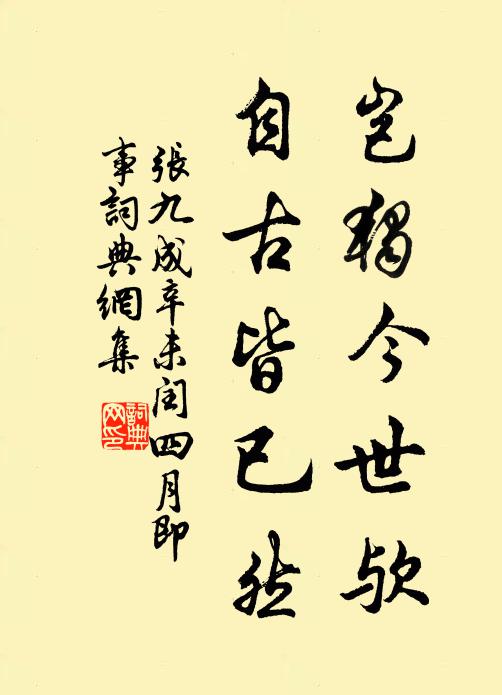 豈獨今世欤
自古皆已然
張九成辛未闰四月即
事詞典網集
詞典
网印